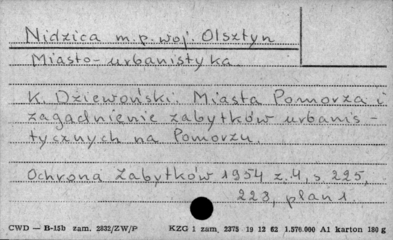 Nidzica m.p. woj. Olsztyn
Miasto - urbanistyka.
K. Dziewoński. Miasta Pomorza i
zagadnienie zabytków urbanis -
tycznych na Pomorzu.
Ochrona Zabytków 1954 z. 4, s 225,
223, plan 1.
CWD — B-15b zam. 2832/ZW/P KZG 1 zam. 2375 19 12 62 1.576.000 A1 karton 180 g